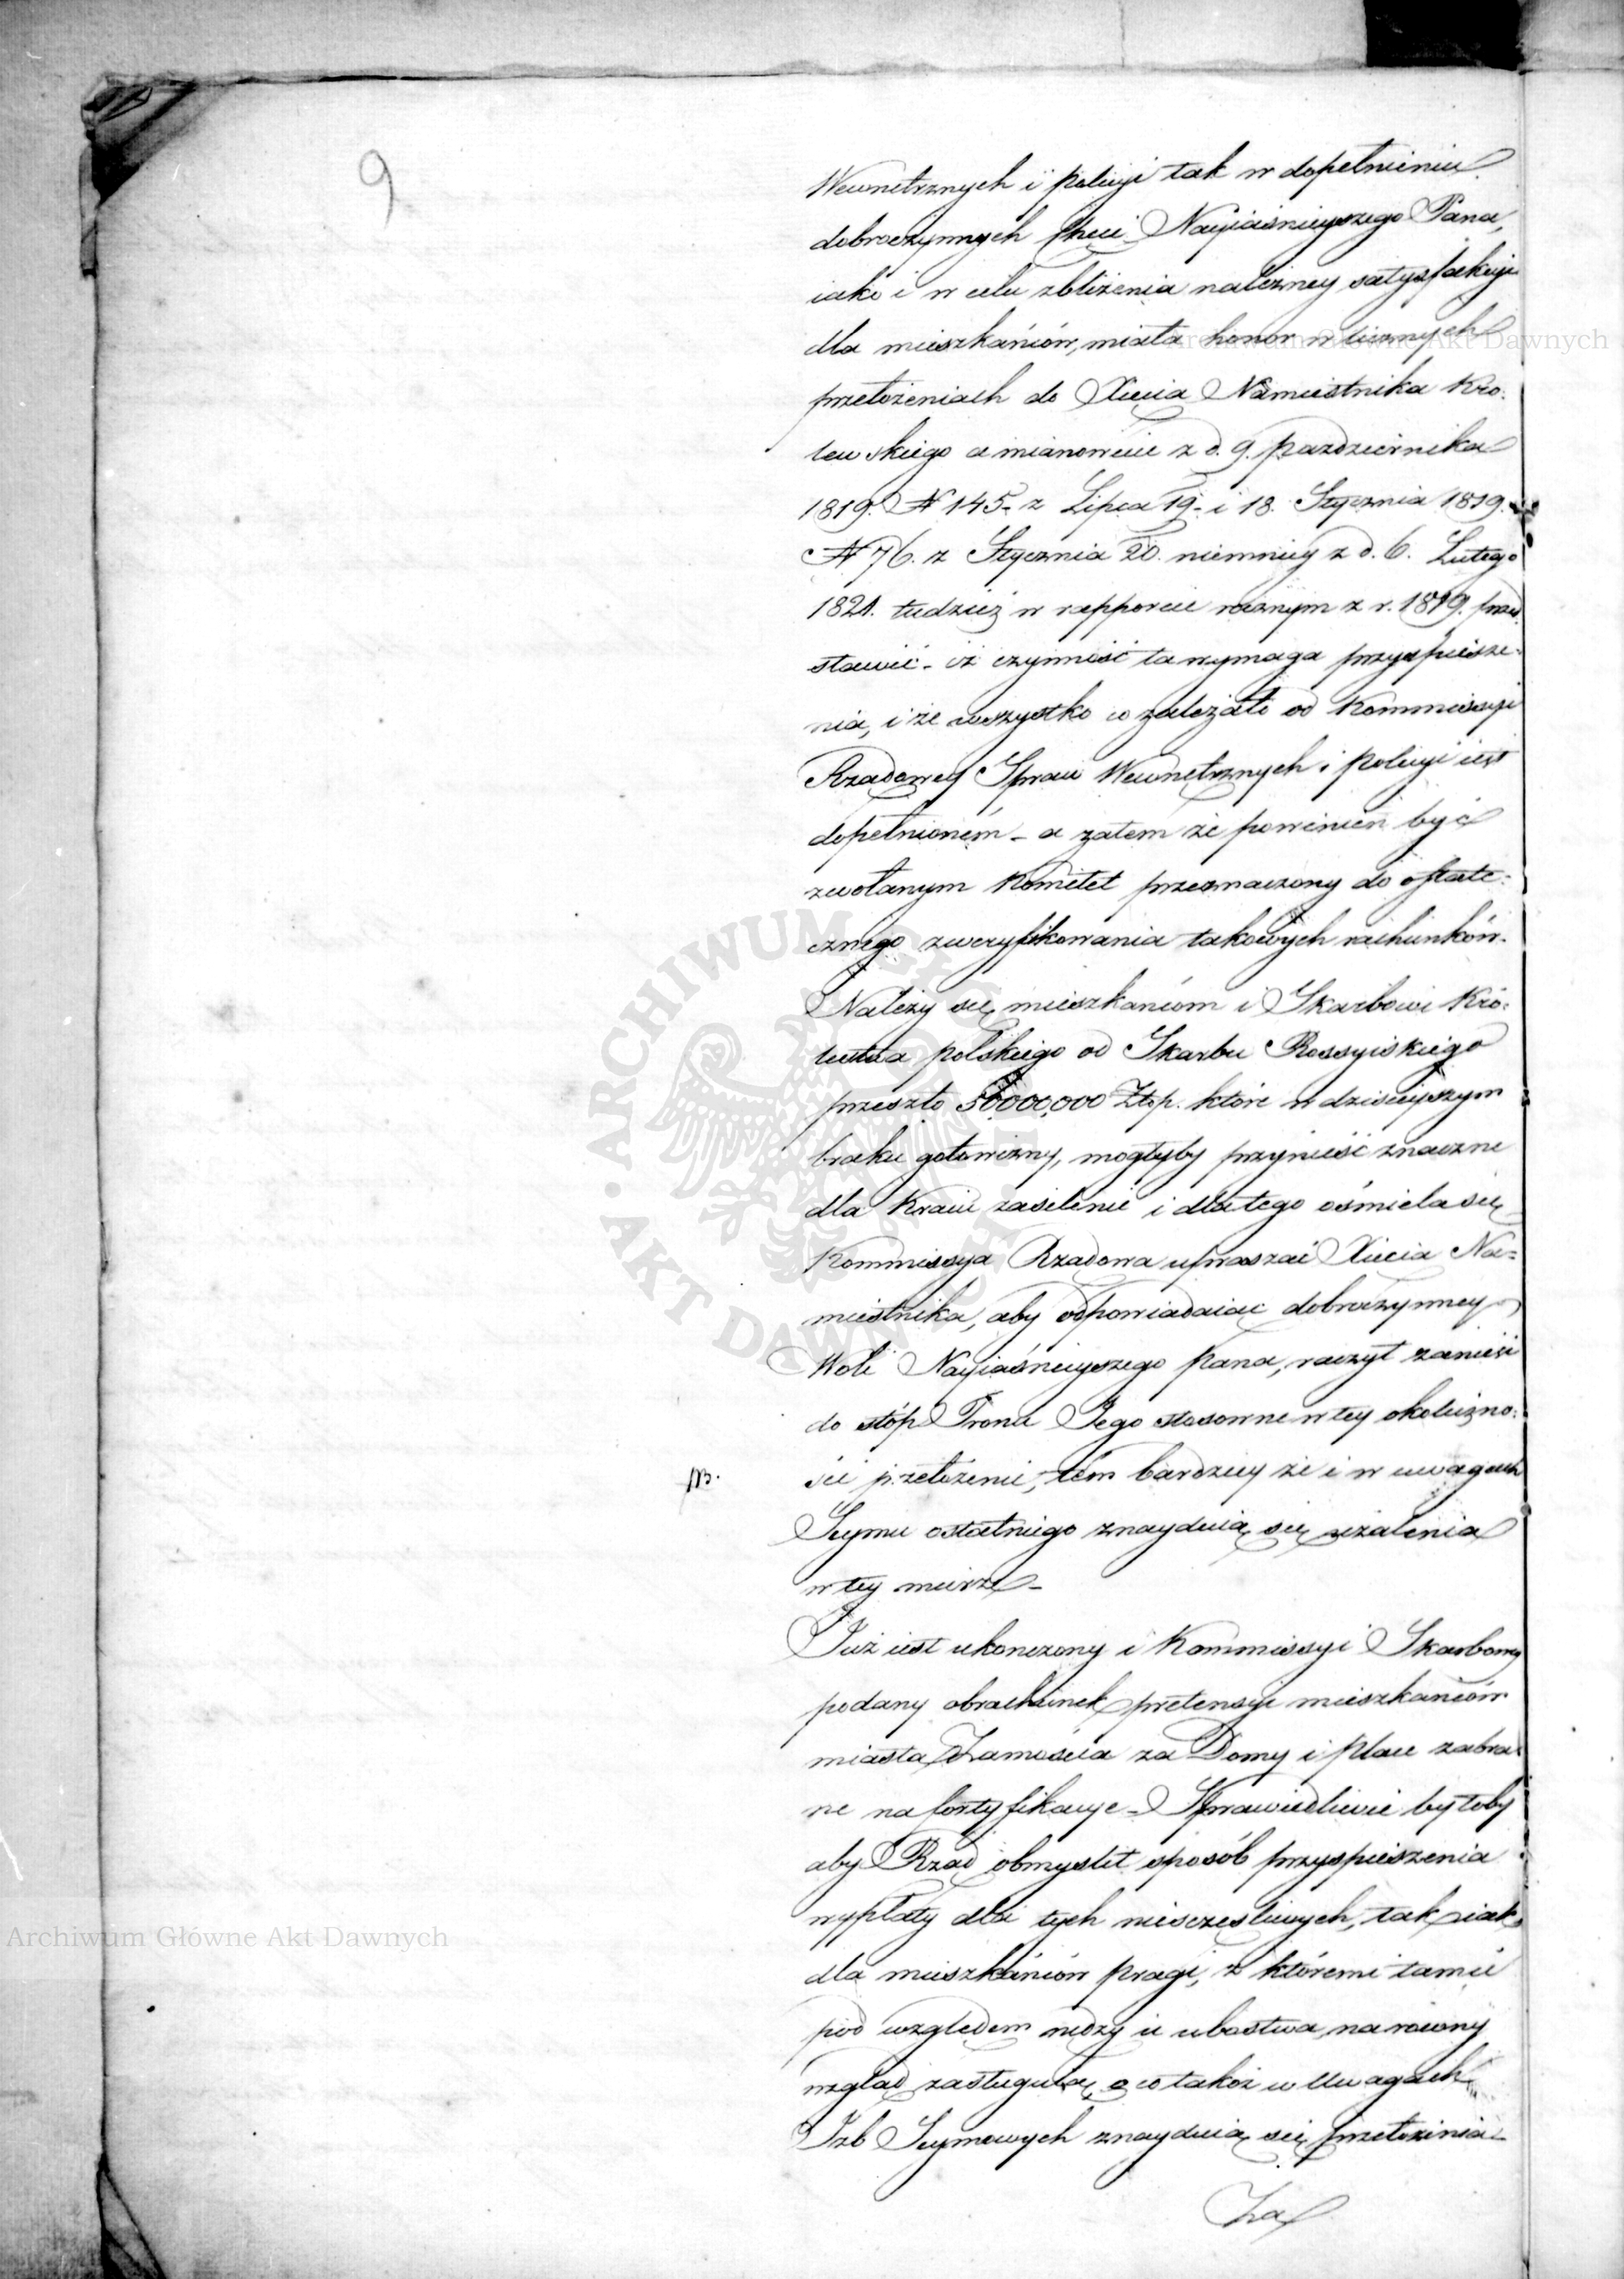 9
Wewnetrznych i policyi tak w dopełnieniu
dobroczynnych chęci Nayiaśnieyszego Pana,
iako i w celu zbliżenia należney satysfakcyi
dla mieszkańców, miała honor w licznych
przełożeniach do Xięcia Namiestnika Kró-
lewskiego a mianowicie z d. 9. pazdziernika
1819. N 145. z Lipca 19. i 18. Stycznia 1819.
N 76. z Stycznia 20. niemniey z d. 6. Lutego
1821. tudzież w rapporcie rocznym z r. 1819. przed
stawić - iż czynność ta wymaga przyspiesze-
nia, i że wszystko co zależało od Kommissyi
Rządowey Spraw Wewnętrznych i policyi iest
dopełnionem - a zatem że powinien być
zwołanym Komitet przeznaczony do ostate-
cznego zweryfikowania takowych rachunków.
Należy się mieszkańcom i Skarbowi Kró-
lestwa polskiego od Skarbu Rossyiskiego
przeszło 50,000,000 Złp. które w dzisieyszym
braku gotowizny, mogłyby przynieść znaczne
dla Kraiu zasilenie i dla tego ośmiela się
Kommissya Rządowa upraszać Xięcia Na-
miestnika, aby odpowiadaiąc dobroczynney
Woli Nayiaśnieyszego Pana, raczył zanieść
do stóp Tronu Jego stosowne w tey okoliczno-
NB.
ści przełożenie, tém bardziey że i w uwagach
Seymu ostatniego znayduią się użalenia
w tey mierze -
Już iest ukonczony i Kommissyi Skarbowey
podany obrachunek pretensyi mieszkańców
miasta Zamościa za Domy i place zabra-
ne na fortyfikacye - Sprawiedliwie byłoby
aby Rząd obmyślił sposób przyspieszenia
wypłaty dla tych niesczęśliwych, tak iak
dla mieszkańców pragi, z któremi tamci
pod względem nędzy i ubóstwa, na równy
wzgląd zasługuią, o co także w Uwagach
Izb Seymowych znayduią się przełożenia -
Za
Archiwum Główne Akt Dawnych
Archiwum Główne Akt Dawnych